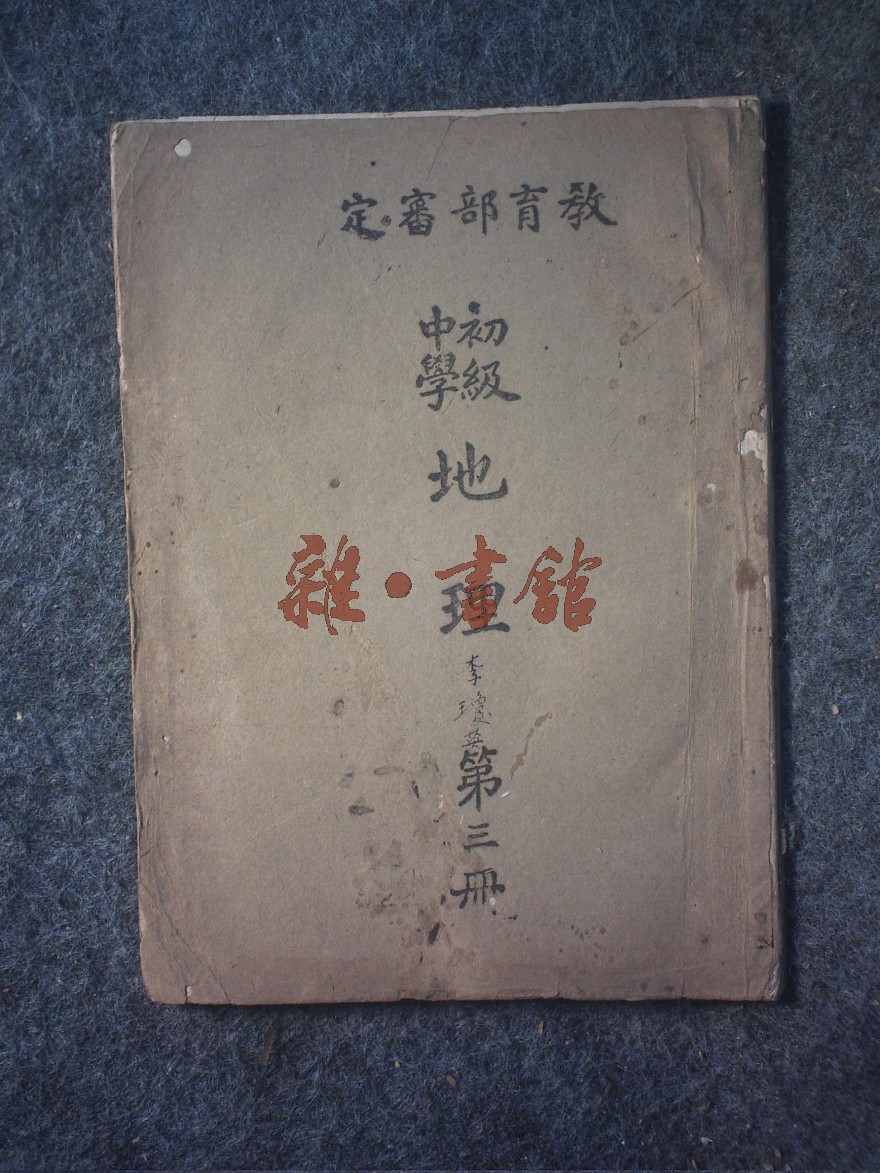 教育部審定
初級
中學
地理
李瓊英
第三冊
雜·書館